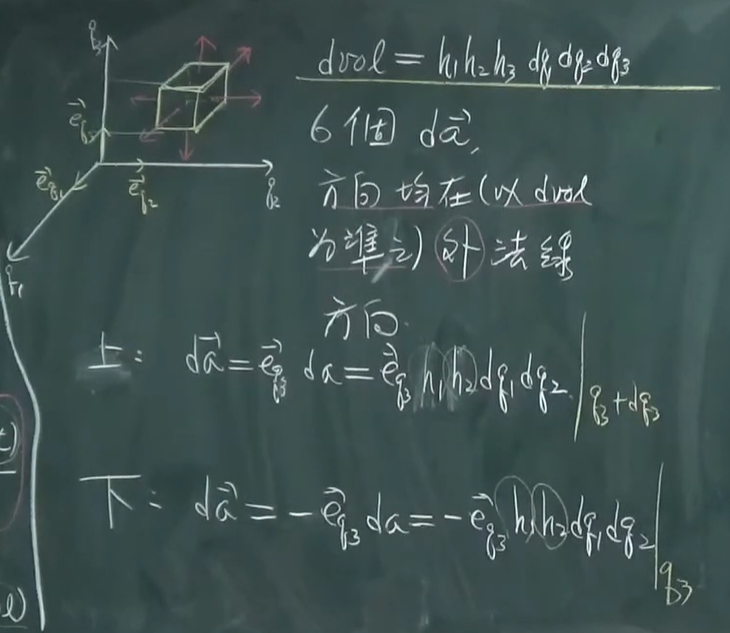 q₃
e⃗q₃
e⃗q₁
e⃗q₂
q₂
q₁
dvol = h₁h₂h₃ dq₁dq₂dq₃
6個 da⃗,
方向均在(以dvol
為準之)外法線
方向.
上: da⃗ = e⃗q₃ da = e⃗q₃ h₁h₂dq₁dq₂|q₃+dq₃
下: da⃗ = −e⃗q₃ da = −e⃗q₃ h₁h₂dq₁dq₂|q₃